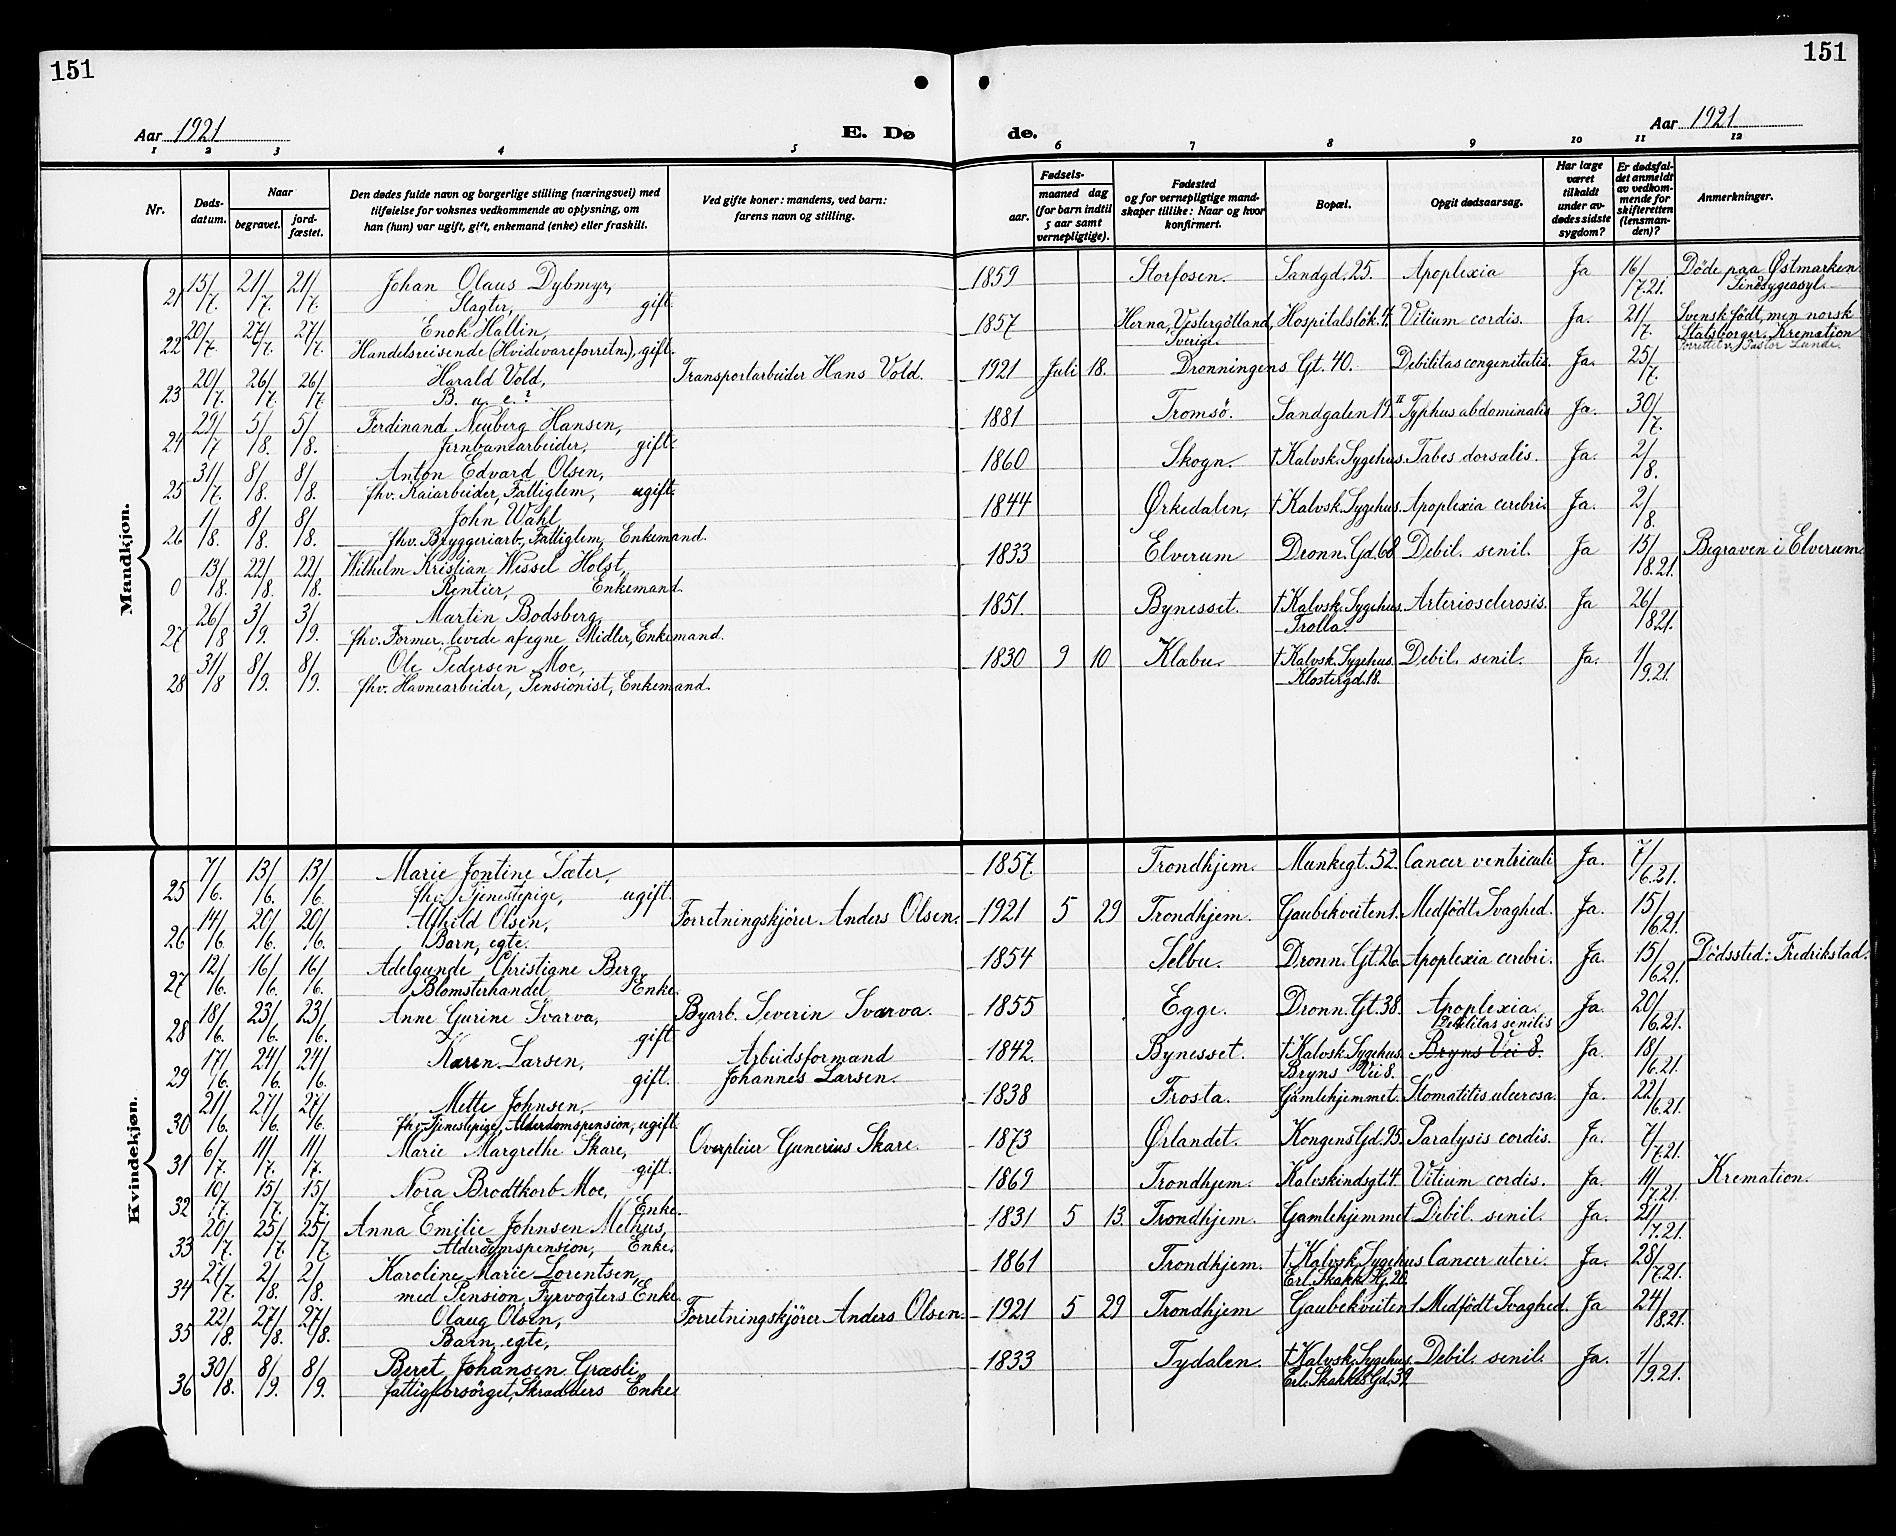 151
151
Aar 1921
E. Dø
de.
Aar 1921
1 2 3 4 5 6 7 8 9 10 11 12
Nr.
Døds-
datum.
Naar
begravet.
jord-
fæstet.
Den dødes fulde navn og borgerlige stilling (næringsvei) med
tilføielse for voksnes vedkommende av oplysning, om
han (hun) var ugift, gift, enkemand (enke) eller fraskilt.
Ved gifte koner: mandens, ved barn:
farens navn og stilling.
Fødsels-
aar.
maaned dag
(for barn indtil
5 aar samt
vernepligtige).
Fødested
og for vernepligtige mand-
skaper tillike: Naar og hvor
konfirmert.
Bopæl.
Opgit dødsaarsag.
Har læge
været
tilkaldt
under av-
dødes sidste
sygdom?
Er dødsfal-
det anmeldt
av vedkom-
mende for
skifteretten
(lensman-
den)?
Anmerkninger.
Mandkjøn.
21 15/7. 21/7. 21/7. Johan Olaus Dybmyr, 1859 Storfosen. Sandgd. 25. Apoplexia Ja 16/7.21. Döde paa Østmarken
Slagter, gift. Sindsygeasyl.
22 20/7. 27/7. 27/7. Enok Hallin, 1857 Herna, Vestergötland, Hospitalslök. 4. Vitium cordis. Ja. 21/7. Svensk födt, men norsk
Handelsreisende (Hvidevareforretn.), gift. Sverige. Statsborger. Kremation
Pastor Lunde.
23 20/7. 26/7. 26/7 Harald Vold, Transportarbeider Hans Vold. 1921 Juli 18. Dronningens Gt. 40. Debilitas congenitatis. Ja. 25/7.
B. u. e.?
24 29/7 5/8. 5/8. Ferdinand Neuberg Hansen, 1881 Tromsö. Sandgaten 19. II Typhus abdominalis Ja. 30/7.
Jernbanearbeider, gift.
25 31/7. 8/8. 8/8. Anton Edvard Olsen, 1860 Skogn. † Kalvsk. Sygehus. Tabes dorsalis. Ja. 2/8.
fhv. Kaiarbeider, Fattiglem, ugift.
26 1/8. 8/8. 8/8. John Wahl 1844 Ørkedalen, † Kalvsk. Sygehus. Apoplexia cerebri. Ja. 2/8.
fhv. Bryggeriarb., Fattiglem, Enkemand.
0 13/8. 22/8. 22/8. Wilhelm Kristian Wessel Holst, 1833 Elverum Dronn. Gd. 68 Debil. senil. Ja 15/8.21. Begraven i Elverum
Rentier, Enkemand.
27 26/8 3/9. 3/9. Martin Bodsberg, 1851. Bynesset. † Kalvsk. Sygehus. Arteriosclerosis. Ja 26/8.21.
fhv. Former, levede af egne Midler, Enkemand. Trolla.
28 31/8 8/9. 8/9. Ole Pedersen Moe, 1830 9 10 Klabu. † Kalvsk. Sygehus. Debil. senil. Ja. 1/9.21.
fhv. Havnearbeider, Pensionist, Enkemand. Klostergd. 18.
Kvindekjøn.
25 7/6. 13/6. 13/6. Marie Jontine Sæter, 1857. Trondhjem. Munkegt. 52. Cancer ventriculi Ja. 7/6.21.
fhv. Tjenestepige, ugift.
26 14/6 20/6. 20/6. Alfhild Olsen, Forretningskjörer Anders Olsen. 1921 5 29 Trondhjem. Gaubekveiten 1. Medfödt Svaghed. Ja. 15/6.21.
Barn, egte.
27 12/6. 16/6. 16/6. Adelgunde Christiane Berg, 1854 Selbu. Dronn. Gt. 26. Apoplexia cerebri. Ja. 15/6.21. Dödssted: Fredrikstad.
Blomsterhandel Enke.
28 18/6. 23/6. 23/6. Anne Gurine Svarva, Byarb. Severin Svarva. 1855 Egge. Dronn. Gt. 38. Apoplexia. Ja. 20/6.21.
gift Debilitas senilis
29 17/6. 24/6. 24/6. Karen Larsen, Arbeidsformand 1842. Bynesset. † Kalvsk. Sygehus. Bryns Vei 8. Ja. 18/6.21.
gift. Johannes Larsen. Bryns Vei 8.
30 21/6. 27/6. 27/6. Mette Johnsen, 1838 Frosta. Gamlehjemmet. Stomatitis ulcerosa. Ja. 22/6.21.
fhv. Tjenestepige, Alderdomspension, ugift.
31 6/7. 11/7. 11/7. Marie Margrethe Skare, Overpleier Gunerius Skare. 1873 Ørlandet. Kongens Gd. 95. Paralysis cordis. Ja. 7/7.21.
gift.
32 10/7. 15/7. 15/7. Nora Brodtkorb Moe, 1869 Trondhjem. Kalvskindsgt. 4. Vitium cordis. Ja. 11/7.21. Kremation.
Enke.
33 20/7. 25/7. 25/7. Anna Emilie Johnsen Melhus, 1831 5 13. Trondhjem. Gamlehjemmet Debil. senil. Ja. 21/7.21.
Alderdomspension, Enke.
34 27/7. 2/8. 2/8. Karoline Marie Lorentsen, 1861 Trondhjem. † Kalvsk. Sygehus Cancer uteri. Ja. 28/7.21.
med Pension, Fyrvogters Enke. Erl. Skakk. Kg. 20.
35 22/8. 27/8. 27/8. Olaug Olsen, Forretningskjörer Anders Olsen. 1921 5 29 Trondhjem Gaubekveiten 1. Medfödt Svaghed. Ja 24/8.21.
Barn, egte,
36 30/8. 8/9. 8/9. Beret Johansen Græsli, 1833 Tydalen. † Kalvsk. Sygehus. Debil. senil. Ja. 1/9.21.
fattigforsörget, Skrædders Enke Erl. Skakkes Gd. 39